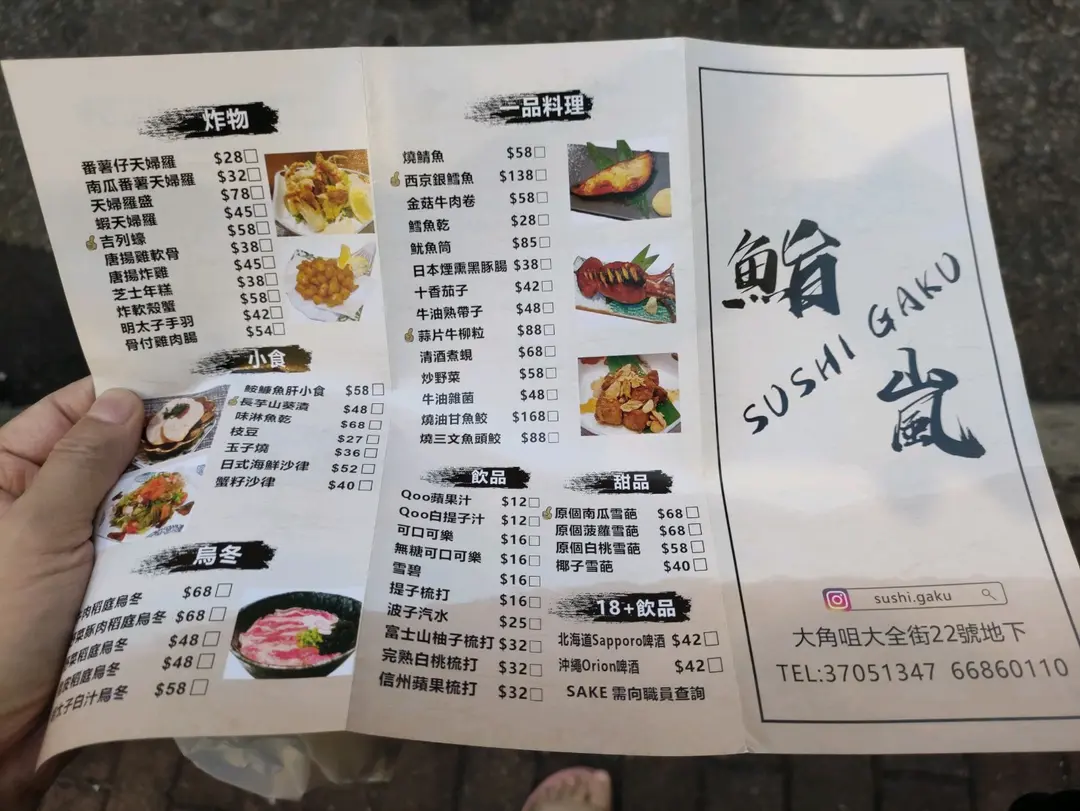 炸物
番薯仔天婦羅 $28
南瓜番薯天婦羅 $32
天婦羅盛 $78
蝦天婦羅 $45
吉列蠔 $58
唐揚雞軟骨 $38
唐揚炸雞 $45
芝士年糕 $38
炸軟殼蟹 $58
明太子手羽 $42
骨付雞肉腸 $54
小食
鮟鱇魚肝小食 $58
長芋山葵漬 $48
味淋魚乾 $68
枝豆 $27
玉子燒 $36
日式海鮮沙律 $52
蟹籽沙律 $40
烏冬
肉稻庭烏冬 $68
菜豚肉稻庭烏冬 $68
菜稻庭烏冬 $48
稻庭烏冬 $48
太子白汁烏冬 $58
一品料理
燒鯖魚 $58
西京銀鱈魚 $138
金菇牛肉卷 $58
鱈魚乾 $28
魷魚筒 $85
日本煙熏黑豚腸 $38
十香茄子 $42
牛油熟帶子 $48
蒜片牛柳粒 $88
清酒煮蜆 $68
炒野菜 $58
牛油雜菌 $48
燒油甘魚鮫 $168
燒三文魚頭鮫 $88
飲品
Qoo蘋果汁 $12
Qoo白提子汁 $12
可口可樂 $16
無糖可口可樂 $16
雪碧 $16
提子梳打 $16
波子汽水 $25
富士山柚子梳打 $32
完熟白桃梳打 $32
信州蘋果梳打 $32
甜品
原個南瓜雪葩 $68
原個菠蘿雪葩 $68
原個白桃雪葩 $58
椰子雪葩 $40
18+飲品
北海道Sapporo啤酒 $42
沖繩Orion啤酒 $42
SAKE 需向職員查詢
鮨
SUSHI GAKU
嵐
sushi.gaku
大角咀大全街22號地下
TEL:37051347 66860110